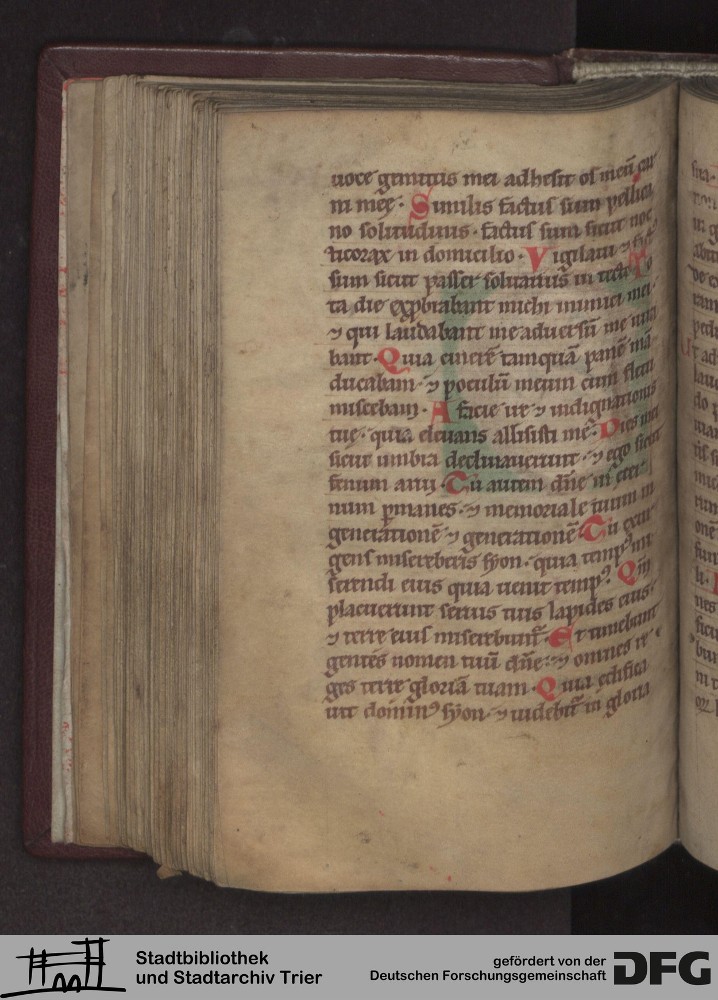 uoce gemitus mei adhesit os meū car
ni meę · Similis factus sum pellica
no solitudinis · factus sum sicut noc
ticorax in domicilio · Vigilaui ⁊ fact
sum sicut passer solitarius in tecto To
ta die exp̱brabant michi inimici mei ·
⁊ qui laudabant me aduersū me iura
bant · Quia cinerē tamquā panē mā
ducabam · ⁊ poculū meum cum fletu
miscebam · A facie ire ⁊ indignationis
tue · quia eleuans allisisti me · Dies mei
sicut umbra declinauerunt · ⁊ ego sicut
fenum arui · Tu autem dn̄e in eter
num p̱manes · ⁊ memoriale tuum in
generationē ⁊ generationē Tu exur
gens misereberis syon · quia tempꝰ mi
serendi eius quia uenit tempꝰ · Qm̄
placuerunt seruis tuis lapides eius ·
⁊ terre eius miserebunt᷑ · Et timebunt
gentes nomen tuū dn̄e · ⁊ omnes re
ges terre gloriā tuam · Quia edifica
uit dominꝰ syon · ⁊ uidebit᷑ in gloria
Stadtbibliothek
und Stadtarchiv Trier
gefördert von der
Deutschen Forschungsgemeinschaft
DFG